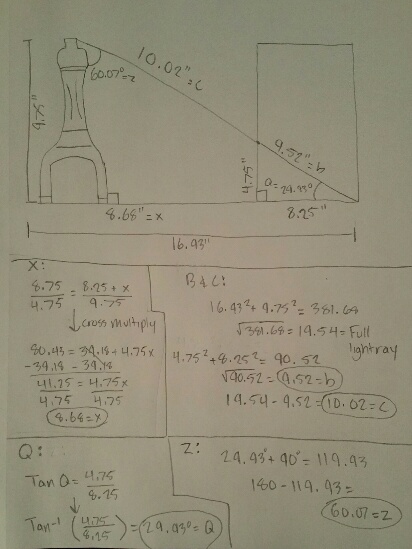 9.75"
60.07°=z
10.02"
=c
9.52"=b
4.75"
Q=29.93°
8.68"=x
8.25"
16.93"
X:
8.25/4.75 = 8.25+x/9.75
↓ cross multiply
80.43=39.18+4.75x
-39.18 -39.18
41.25 = 4.75x
4.75 4.75
8.68=x
B & C:
16.93²+9.75²=381.68
√381.68=19.54=Full
lightray
4.75²+8.25²=90.52
√90.52=9.52=b
19.54-9.52=10.02=c
Q:
Tan Q=4.75/8.25
↓
Tan⁻¹(4.75/8.25)=29.93°=Q
Z:
29.93°+90°=119.93
180-119.93=
60.07=Z